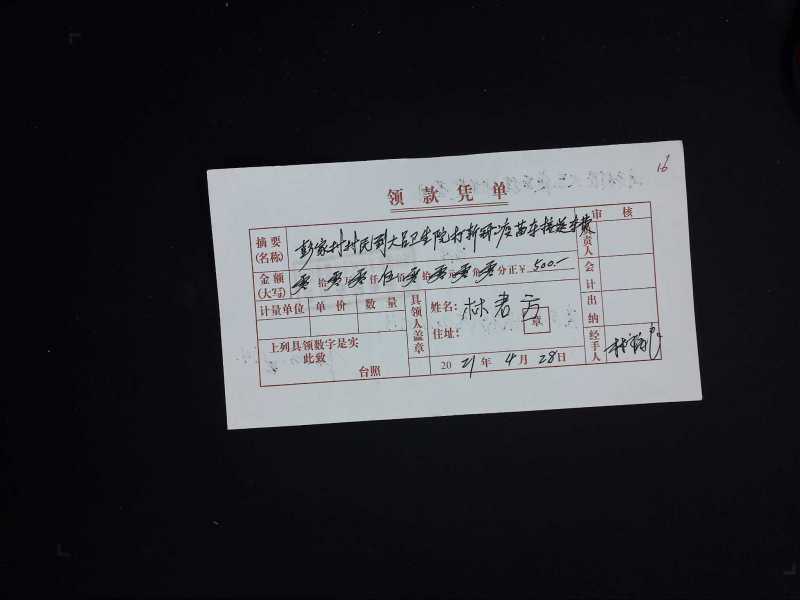 16
领款凭单
摘要(名称) 彭家村村民到大吕卫生院打新冠疫苗车接送车费
审核
负责人
金额(大写) 零拾零万零仟伍佰零拾零元零角零分正￥500.-
会计
计量单位 单价 数量
具领人盖章
姓名：林君方
章
住址：
出纳
上列具领数字是实
此致
台照
2021年4月28日
经手人